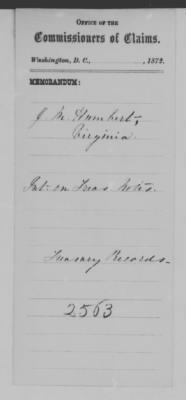 OFFICE OF THE
Commissioners of Claims.
Washington, D. C., , 1872.
MEMORANDUM:
J M Humbert,
Virginia
Int: on Treas Notes.
Treasury Records
2563